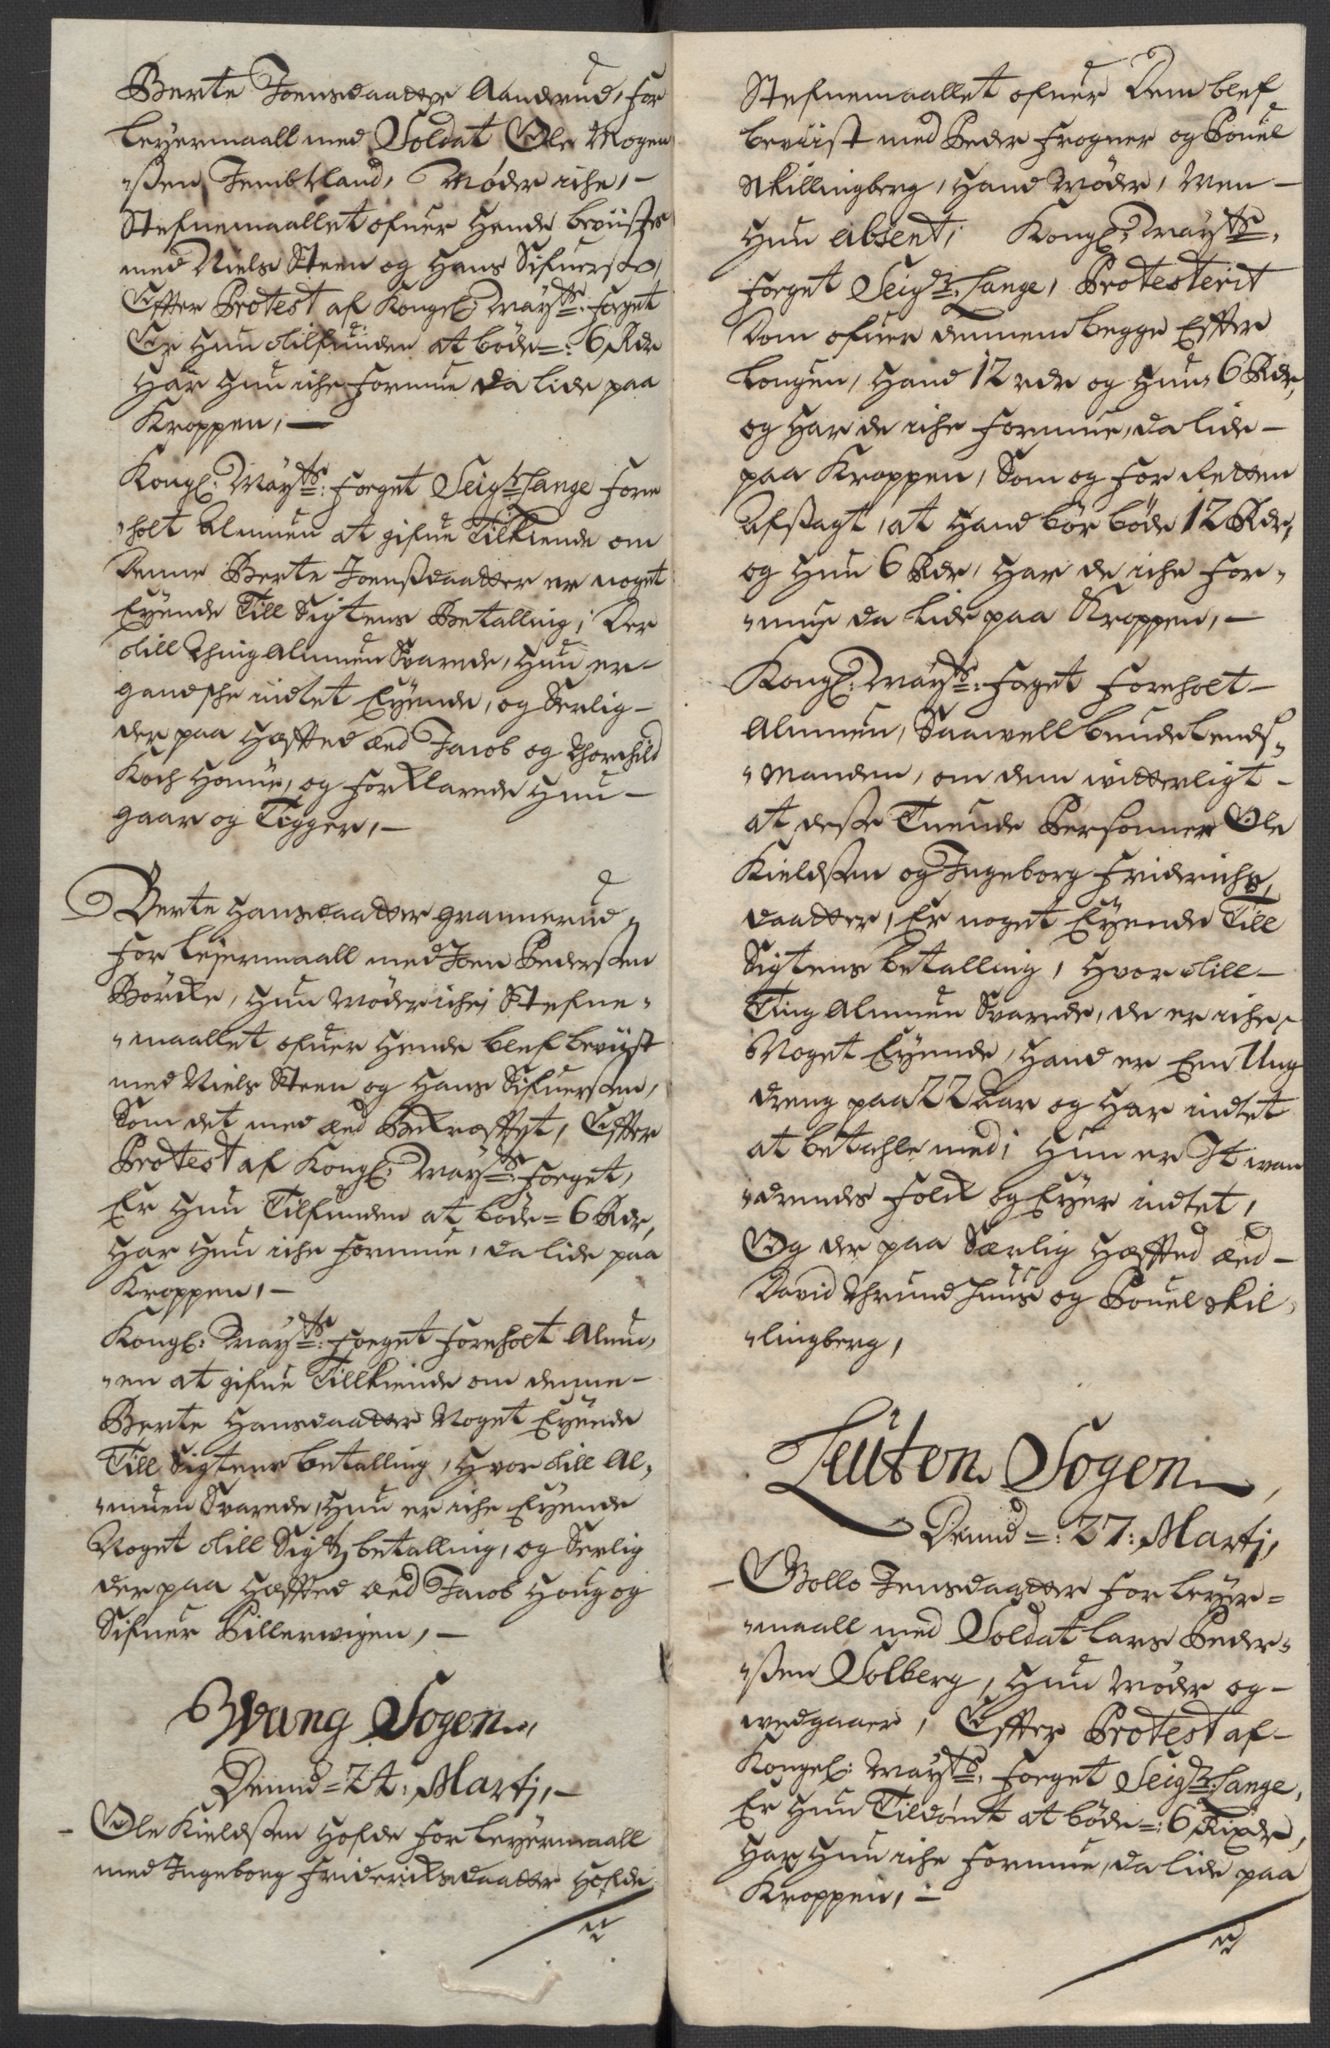 Berte Joensdaatter Aanderud, for
Leyermaall med Soldat Ole Mogen
"sen Jembtland, Møder iche, -
Stefnemaallet ofuer Hende beviistes
med Niels Steen og Hans Sifuersen,
Effter Protest af Kongel: Mayts: foget
Er Hun tilfunden at bøde =: 6 Rdr
Har Hun iche formue da lide paa
Kroppen, -
Kongl: Mayts: foget Seigr Lange fore
"holt Almuen at gifue Tilkiende om
Denne Berte Joensdaatter er noget
Eyende Till Sigtens Betalling; Der
till Thing Almuen Svarede, Hun er -
gandsche indtet Eyende, og Serlig -
der paa Hæffted æd Jacob og Thorchild
Koch Homue, og forklarede Hun -
gaar og Tigger, -
Berte Hansdaatter Grannerud
for Leyermaall med Joen Pedersen
Børcke, Hun møder iche; Stefne"
"maallet ofuer Hende blef beviist
med Niels Steen og Hans Sifuersen,
Som det med æd Bekræfftet, Effter
Protest af Kongl: Mayts: foget,
Er Hun Tilfunden at bøde = 6 Rdr,
Har Hun iche formue, da lide paa
Kroppen, -
Kongl: Mayts: foget foreholt Almu"
"en at gifue Tillkiende om denne -
Berte Hansdaatter Noget Eyende
Till Sigtens betalling, Hvor till Al"
"muen Svarede, Hun er iche Eyende
Noget till Sigtz betalling, og Serlig
der paa Hæffted æd Jacob Houg og
Sifuer Billerwigen, -
Wang Sogen,
Dennd = 24: Martj, -
- Ole Kieldsen Hofde for Leyermaall
med Ingeborg Fridericksdaatter Hofde
Stefnemaallet ofuer Dem blef
beviist med Peder Frogner og Pouel
Skillingberg, Hand Møder, Men -
Hun Absent; Kongl: Mayts:
foget Seigr: Lange, Protesterit
Dom ofuer dennem begge Effter
Lougen, Hand 12 rdr og Hun 6 Rdr,
og Har de iche formue, da lide -
paa Kroppen, Som og for Retten
Afsagt, at Hand bør bøde 12 Rdr,
og Hun 6 Rdr, Har de iche for"
"mue da Lide paa Kroppen, -
Kongl: Mayts: foget foreholt -
Almuen, Saawell bunde Lends"
"Manden, om dem witterligt -
at desse Tuende Personner Ole
Kieldsen og Ingeborg Friderichs
daatter, Er noget Eyende Till
Sigtens betalling, Hvor till -
Ting Almuen Svarede, de er iche -
Noget Eyende, Hand er Een Ung
dreng paa 22 Aar og Har indtet
at betahle med; Hun er It wan
"drendes folck og Eyer indtet,
Og der paa Særlig Hæffted æd -
David Thrund Huus og Pouel Skil"
"lingberg,
Leuten Sogen,
Dennd =: 27: Martj,
- Golle Jensdaatter for Leyer =
"maall med Soldat Lars Peder"
"sen Solberg, Hun Møder og -
wedgaaer, Effter Protest af -
Kongel: Mayts: foget Seigr: Lange,
Er Hun Tildømt at bøde =: 6 Rixdr,
Har Hun iche formue, da lide paa
Kroppen, -